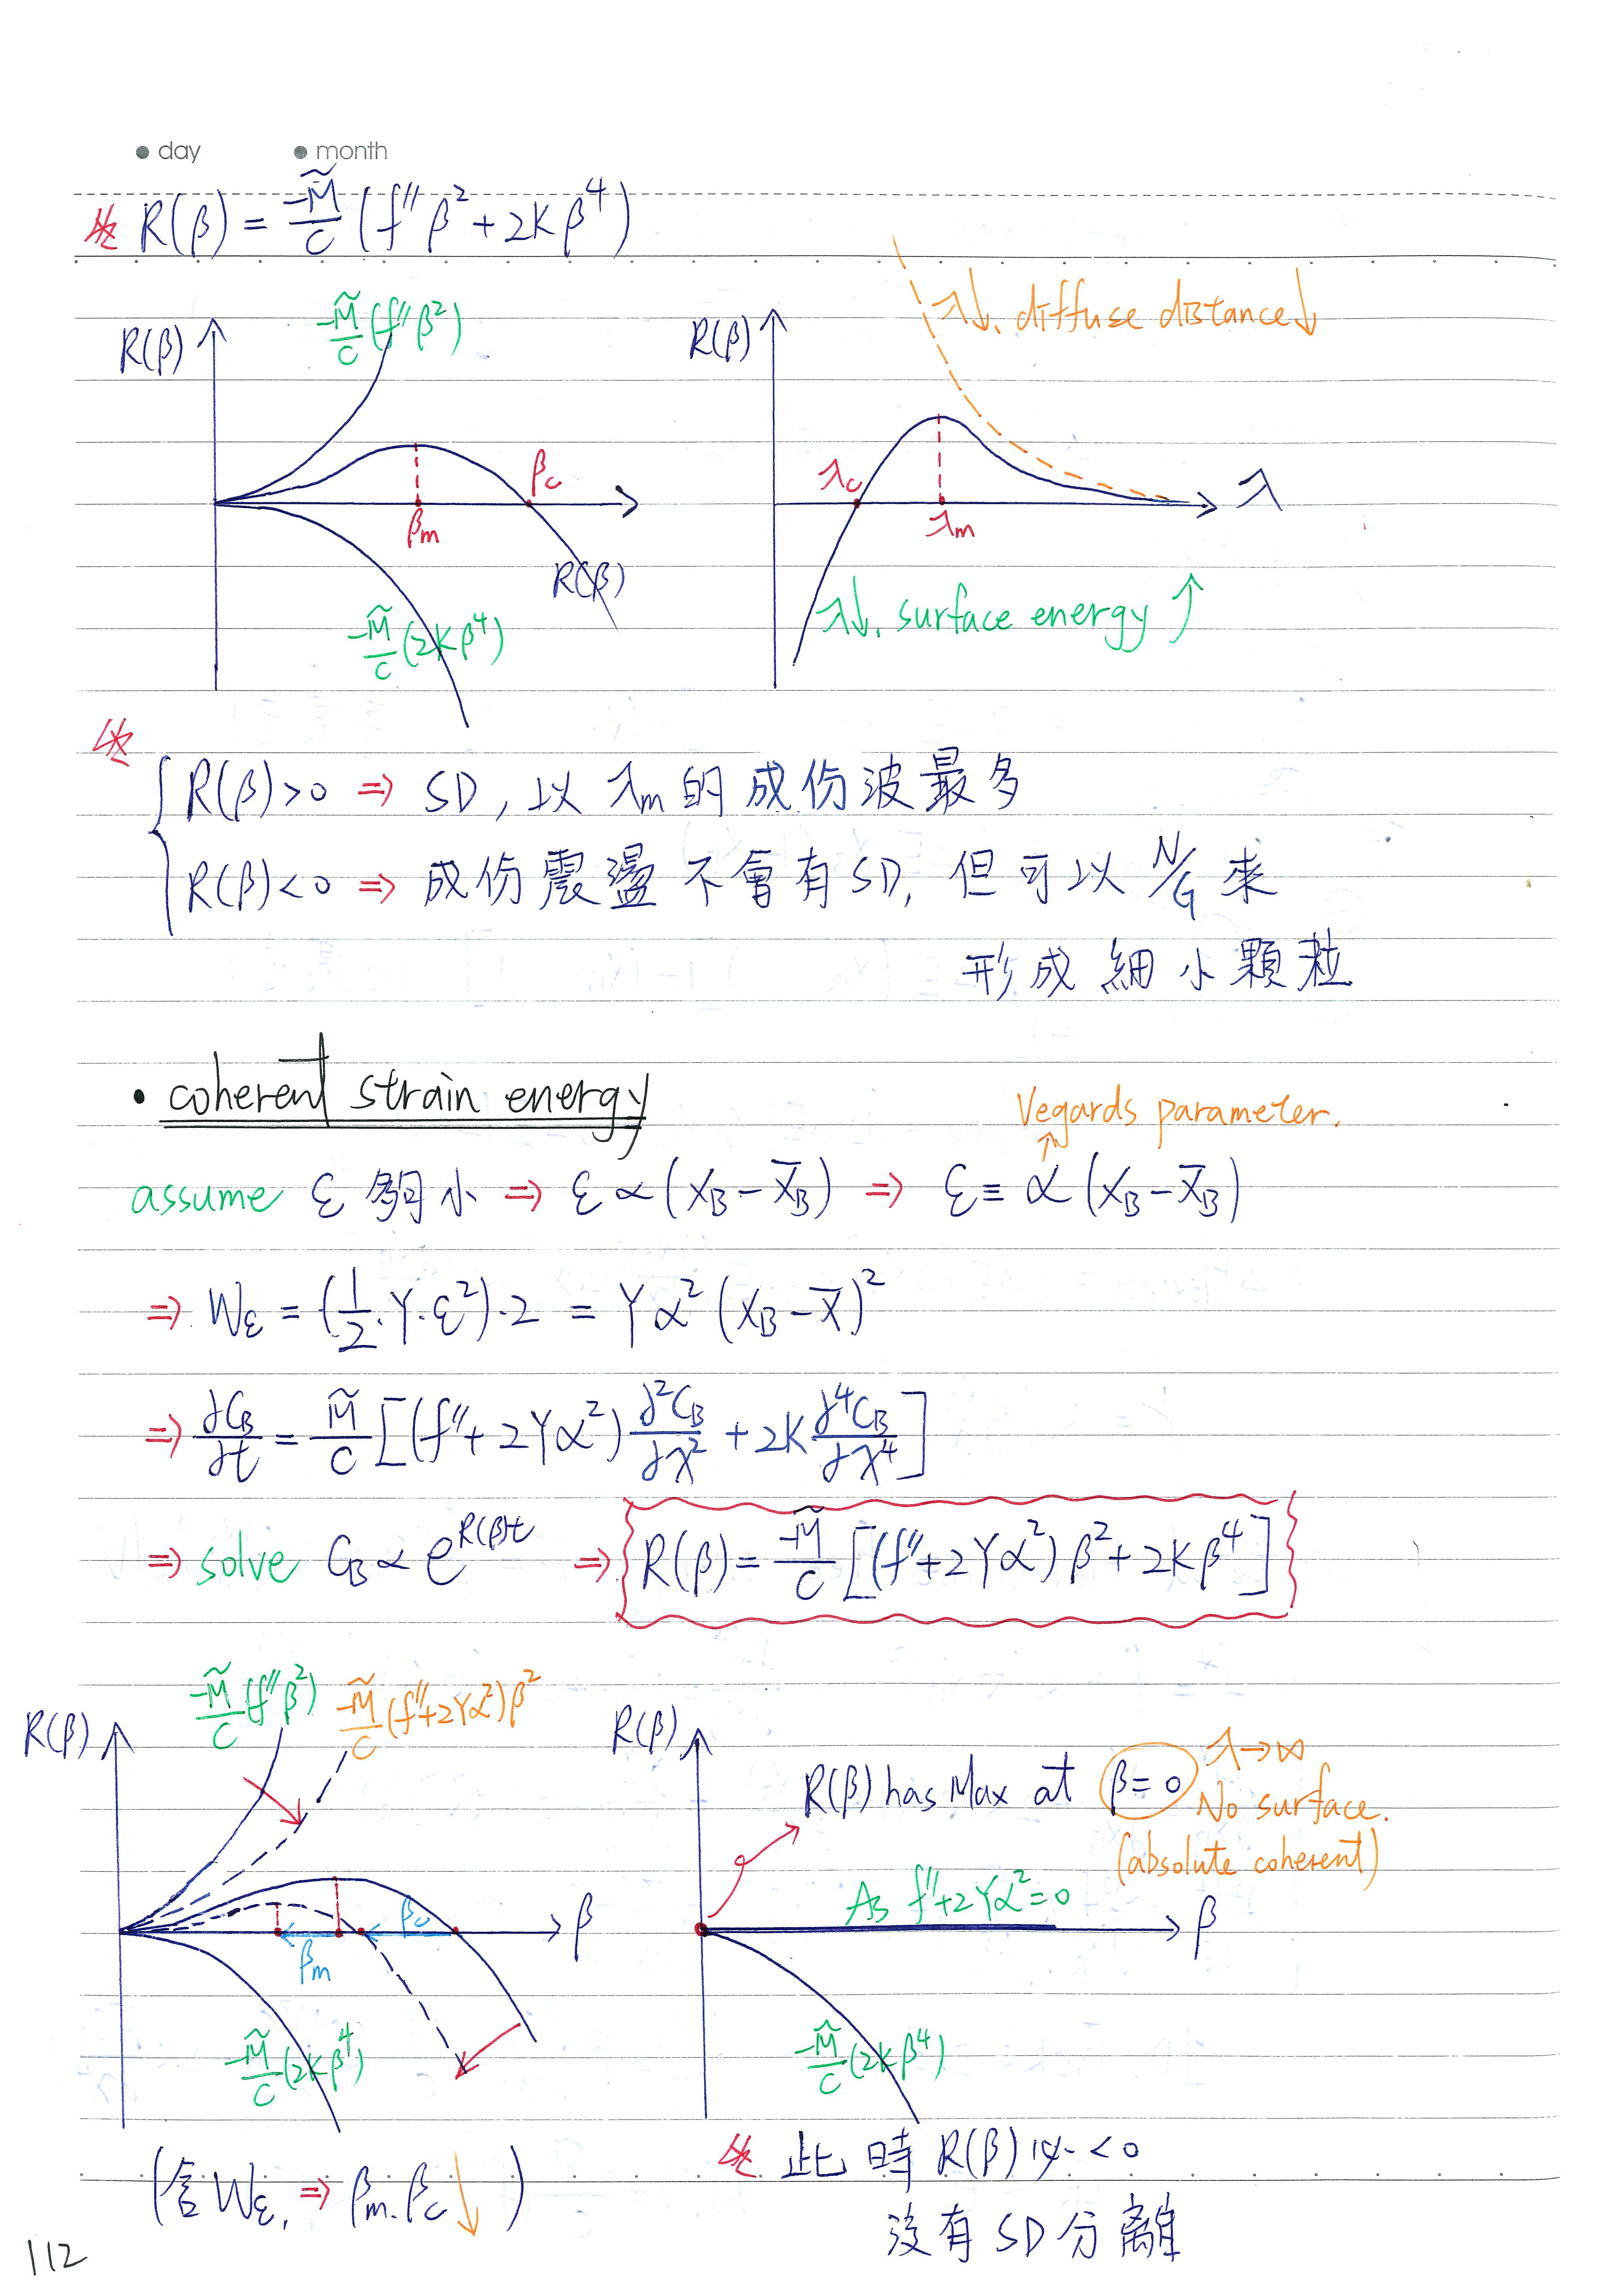 ● day ● month
R(β) = -M̃/C (f″β² + 2Kβ⁴)
R(β)
-M̃/C (f″β²)
βm
βc
R(β)
-M̃/C (2Kβ⁴)
R(β)
λ↓. diffuse distance↓
λc
λm
λ
λ↓. surface energy ↑
R(β)>0 ⇒ SD, 以 λm 的成份波最多
R(β)<0 ⇒ 成份震盪不會有SD, 但可以 N/G 來
形成細小顆粒
• coherent strain energy
Vegards parameter.
assume ε 夠小 ⇒ ε ∝ (X_B - X̄_B) ⇒ ε ≡ α (X_B - X̄_B)
⇒ Wε = (1/2·Y·ε²)·2 = Yα² (X_B - X̄)²
⇒ ∂C_B/∂t = M̃/C [(f″ + 2Yα²) ∂²C_B/∂x² + 2K ∂⁴C_B/∂x⁴]
⇒ solve C_B ∝ e^{R(β)t} ⇒ R(β) = -M̃/C [(f″+2Yα²) β² + 2Kβ⁴]
R(β)
-M̃/C (f″β²)
-M̃/C (f″+2Yα²)β²
βm
βc
β
-M̃/C (2Kβ⁴)
(含Wε, ⇒ βm. βc ↓)
R(β)
R(β) has Max at β=0
λ→∞
No surface.
(absolute coherent)
As f″+2Yα²=0
β
-M̃/C (2Kβ⁴)
此時 R(β) <0
沒有SD分離
112